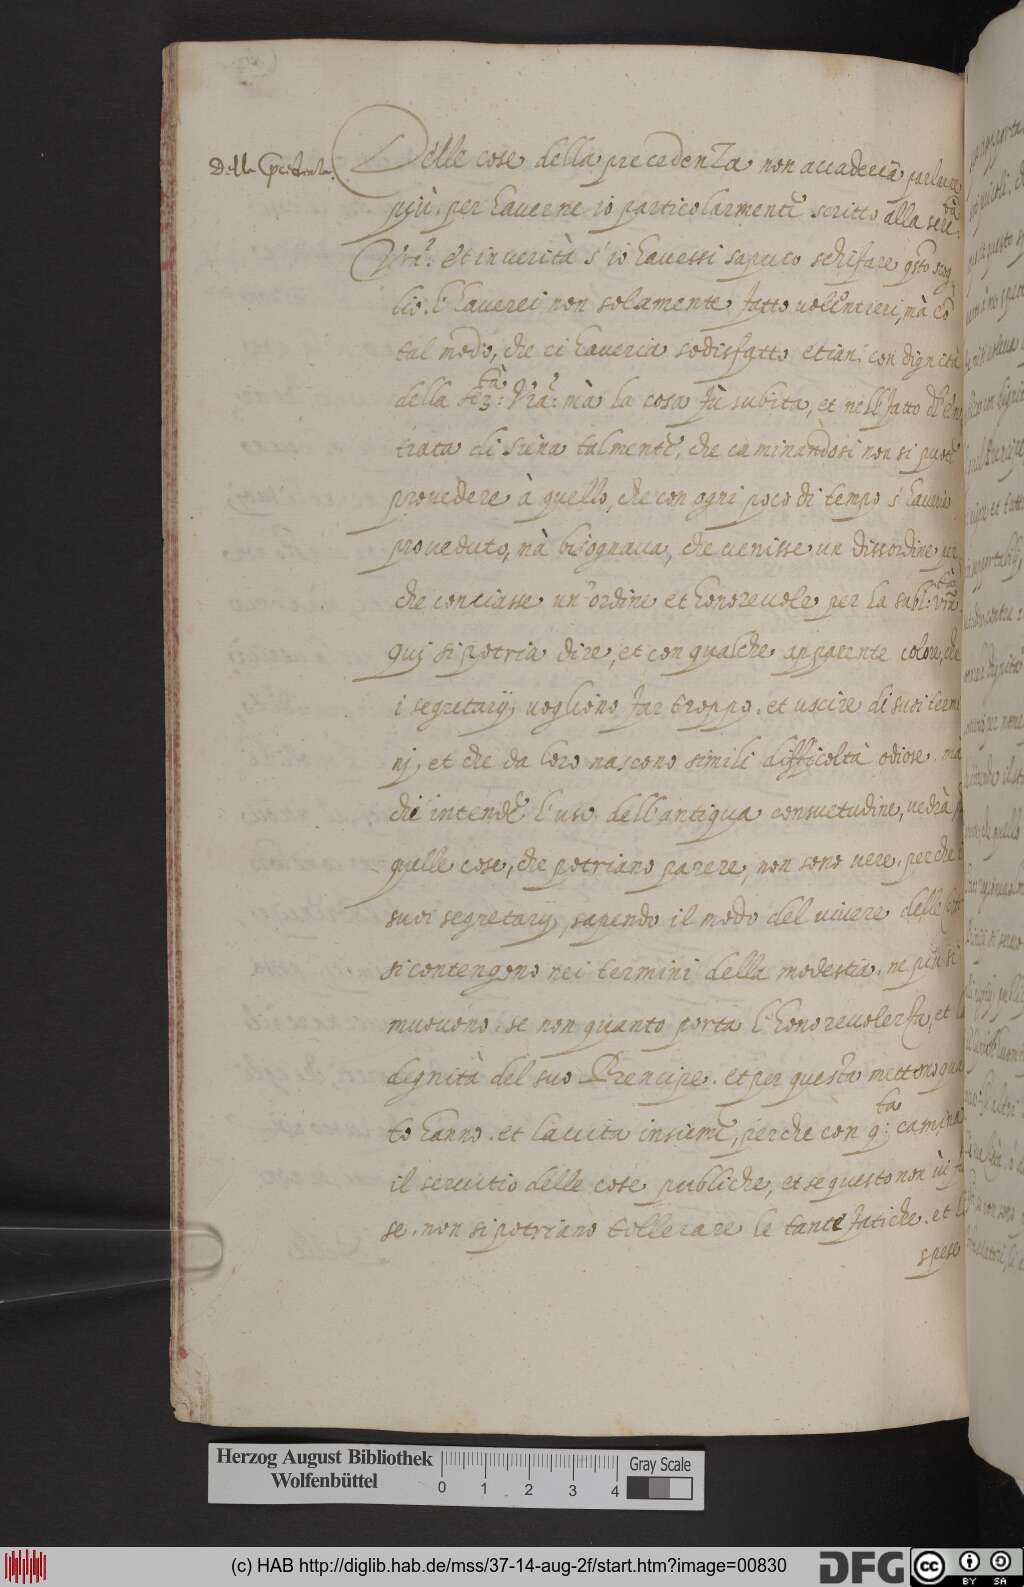 Della precedenza.
Delle cose della precedenza non accaderà parlare
più. per haverne io particolarmente scritto alla Ser.tà
Vra. et in verità s'io havessi saputo schifare qsto scog
lio. l'haverei non solamente fatto volentieri, mà cō
tal modo, che ci haveria sodisfatto etian. con dignità
della Ser.tà Vra: mà la cosa fù subita, et nell fatto dell'en
trata di Siena talmente, che caminandosi non si puote
provedere à quello, che con ogni poco di tempo s'haveria
proveduto, nà bisognava, che venisse un dissordine per
che conciasse un'ordine et honorevole per la subl.tà Vra
Qui si potria dire, et con qualche apparente colore, che
i segretarij vogliono far troppo. et uscire di suoi termi
nj, et che da loro nascono simili difficoltà odiose. ma
chi intende l'uso dell'antiqua consuetudine, vedrà
quelle cose, che potriano parere, non sono vere. perche
suoi segretarij, sapendo il modo del vivere delle
si contengono nei termini della modestia. ne più si
muovono. se non quanto porta l'honorevolezza, et la
degnità del suo Prencipe. et per questa mettono quan
to hanno. et la vita insieme, perche con q:ta camina
il servitio delle cose publiche, et se questo non vi fos
se. non si potriano tollerare le tante fatiche. et le
spese
Herzog August Bibliothek
Wolfenbüttel
0 1 2 3 4
Gray Scale
(c) HAB http://diglib.hab.de/mss/37-14-aug-2f/start.htm?image=00830
DFG
cc BY SA